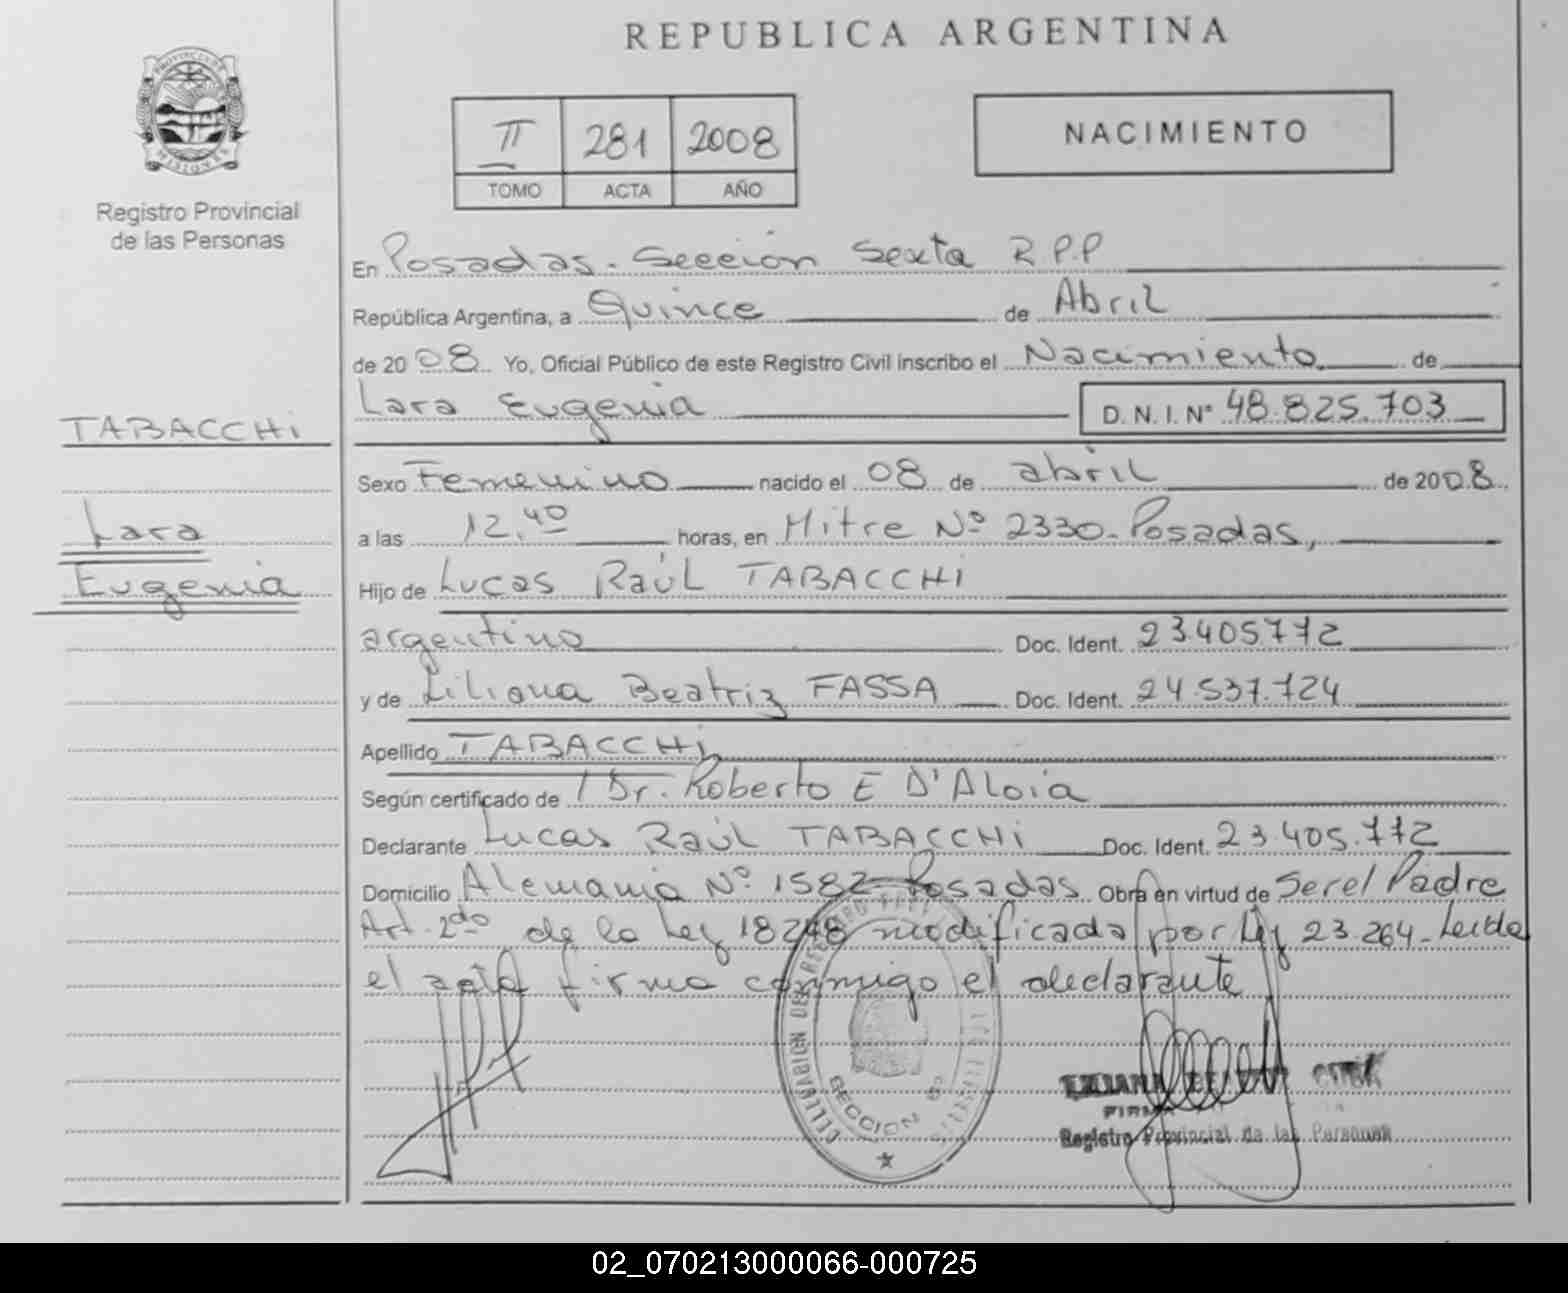 REPUBLICA ARGENTINA
PROVINCIA DE MISIONES
Registro Provincial
de las Personas
II 281 2008
TOMO ACTA AÑO
NACIMIENTO
En Posadas. Sección Sexta R.P.P
República Argentina, a Quince de Abril
de 2008. Yo, Oficial Público de este Registro Civil inscribo el Nacimiento de
Lara Eugenia D. N. I. N° 48.825.703
TABACCHI
Lara
Eugenia
Sexo Femenino nacido el 08 de abril de 2008.
a las 12,40 horas, en Mitre Nº 2330. Posadas,
Hijo de Lucas Raúl TABACCHI
argentino Doc. Ident. 23.405.772
y de Liliana Beatriz FASSA Doc. Ident. 24.537.724
Apellido TABACCHI
Según certificado de Dr. Roberto E D'Aloia
Declarante Lucas Raúl TABACCHI Doc. Ident. 23.405.772
Domicilio Alemania Nº 1582 Posadas. Obra en virtud de Ser el Padre
Art. 2do de la Ley 18248 modificada por Ley 23.264. Leida
el acta firma conmigo el declarante
SECCION 6º
FIRMA
Registro Provincial de las Personas
02_070213000066-000725